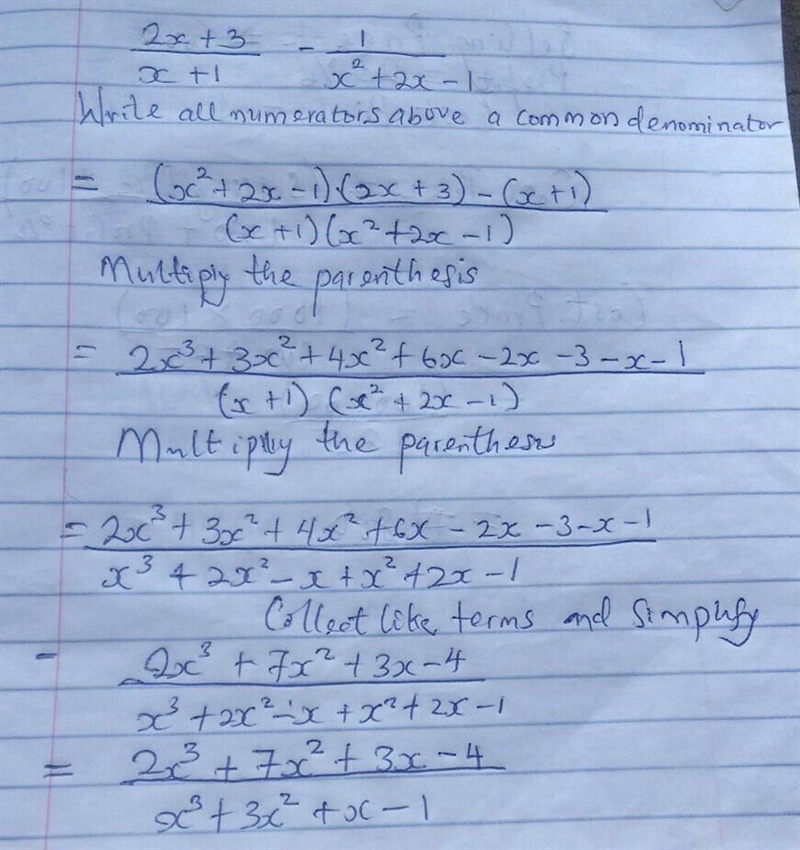 (2x + 3)/(x + 1) - 1/(x² + 2x - 1)
Write all numerators above a common denominator
= ((x² + 2x - 1)·(2x + 3) - (x + 1))/((x + 1)(x² + 2x - 1))
Multiply the parenthesis
= (2x³ + 3x² + 4x² + 6x - 2x - 3 - x - 1)/((x + 1)(x² + 2x - 1))
Multiply the parenthesis
= (2x³ + 3x² + 4x² + 6x - 2x - 3 - x - 1)/(x³ + 2x² - x + x² + 2x - 1)
Collect like terms and simplify
- (2x³ + 7x² + 3x - 4)/(x³ + 2x² - x + x² + 2x - 1)
= (2x³ + 7x² + 3x - 4)/(x³ + 3x² + x - 1)